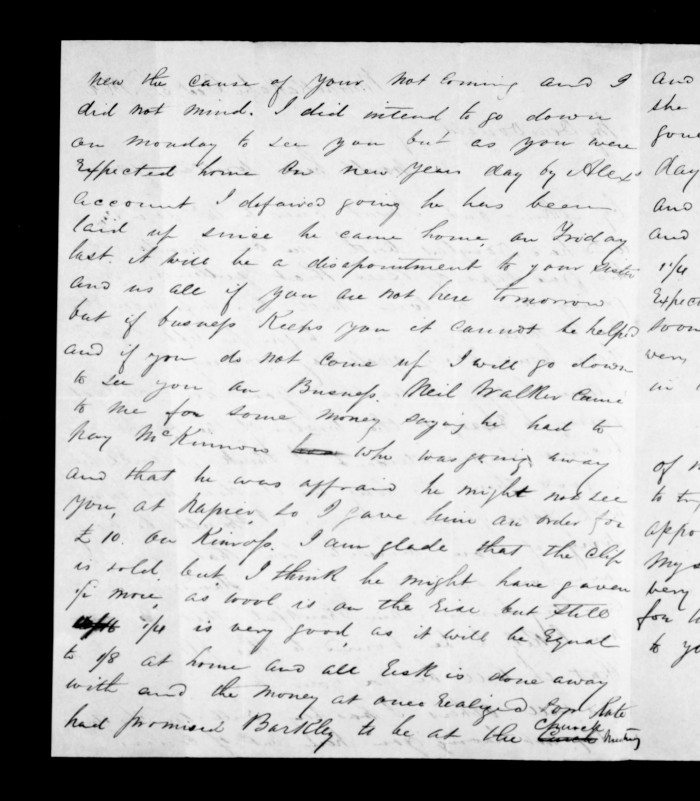 new the cause of your not coming and I
did not mind. I did intend to go down
on monday to see you but as you were
Expected home on new years day by Alexs
account I defaired going he has been
laid up since he came home on Friday
last. it will be a disapointment to your sister
and us all if you are not here tomorrow
but if busness Keeps you it cannot be helped
and if you do not come up I will go down
to see you on Busness. Neil Walker came
to me for some money saying he had to
pay McKinnon who was going away
and that he was affraid he might not see
you, at Napier, so I gave him an order for
£ 10. on Kinross. I am glade that the clip
is sold but I think he might have gaven
/2 more, as wool is on the rise but still
1/4 is very good, as it will be Equal
to 1/8 at home and all risk is done away
with and the money at once realized for Kate
had promised Barkley to be at the Church meeting
and
she
gone
day
and
and
1/4
Expec
soon
very
in
of
to
appo
Mys
very
for
to yo